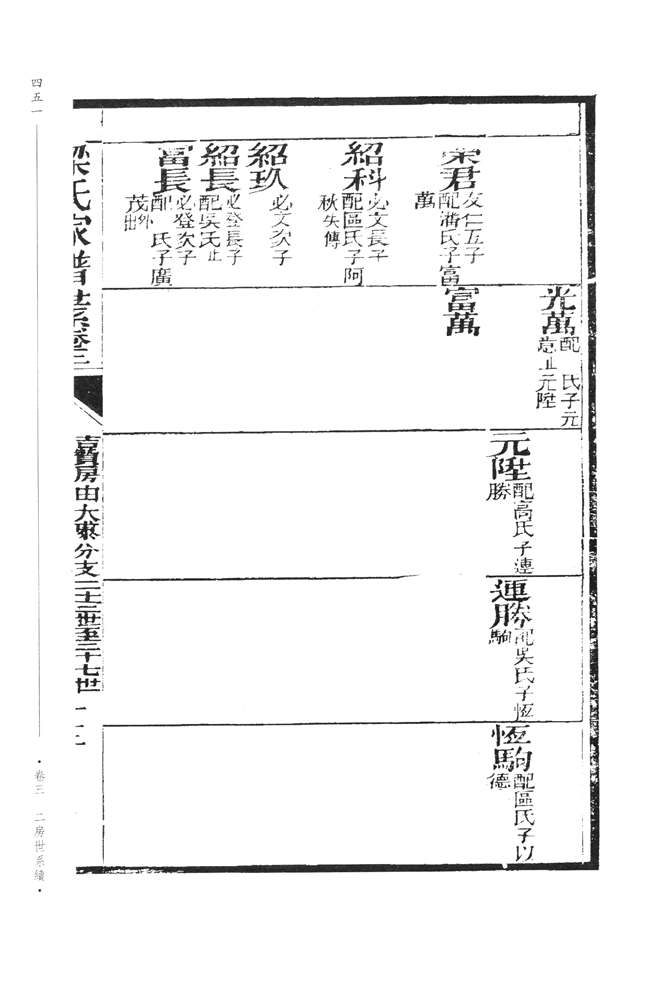 榮君
友仁五子
配潘氏子富
萬
紹科
必文長子
配區氏子阿
秋失傳
紹玖
必文次子
紹長
必登長子
配吳氏止
富長
必登次子
配 氏子廣
茂外出
光萬
配 氏子元
止元陞
富萬
元陞
配高氏子連
勝
連勝
配吳氏子恆
駒
恆駒
配區氏子以
德
梁氏家譜世系卷三
吉贊房由大東分支二十三世至二十七世
四五一
·卷三 二房世系續·